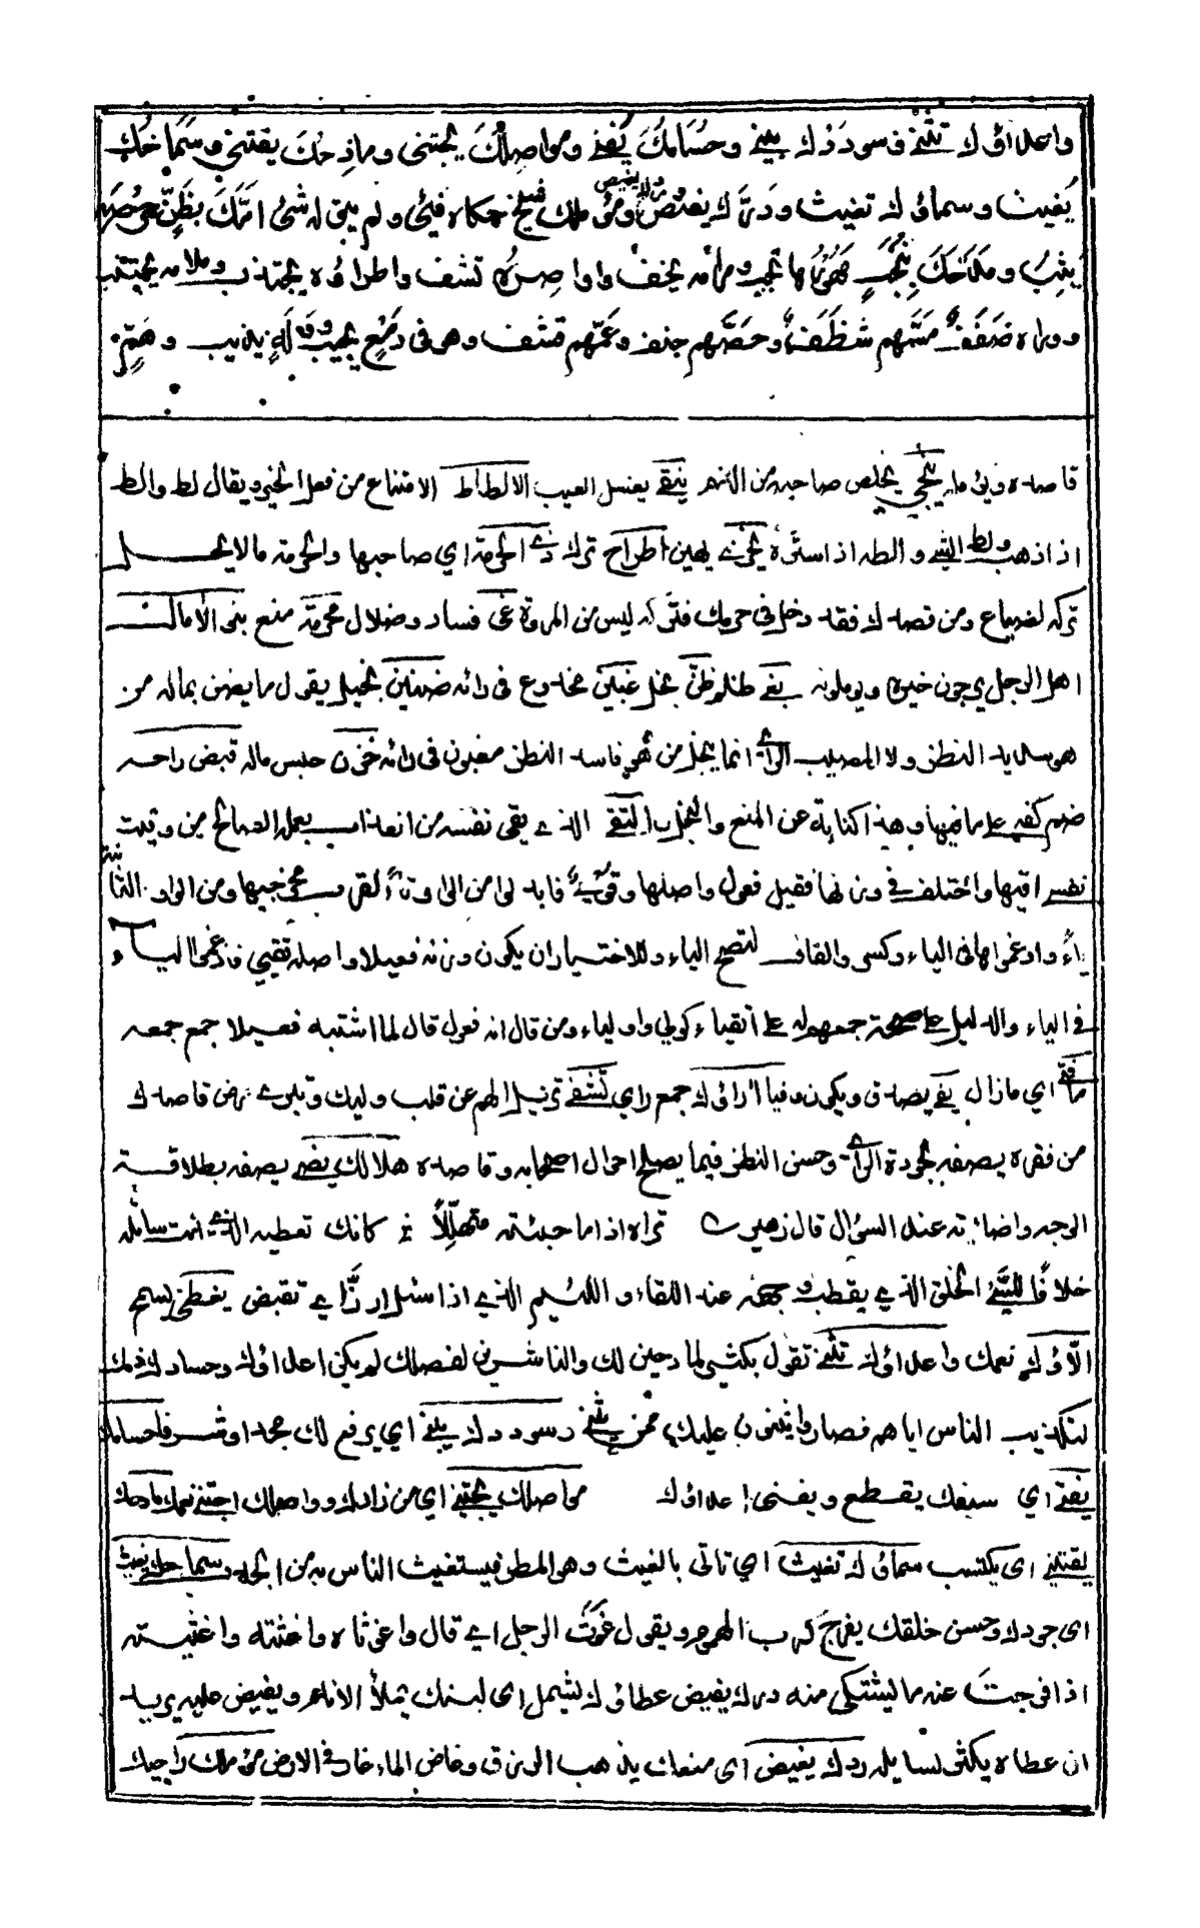 واعداؤك تثني وسوددك يبني وحسامك يفني ومواصلك يجتني ومادحك يقتني وسماحك
يغيث وسماؤك تغيث ودرك يفيض وردك يغيض ومؤملك شيخ حكاه فيئ ولم يبق له شئ امّك بظنّ حرصه
يثب ومدحك بنخب مهورها تجب ومرامه يخف واواصره تشف واطراؤه يجتذب وملامه يجتنب
ووراه ضفف مسّهم شظف وحصّهم جنف وعمّهم قشف وهو في دمع يجيب ووله يذيب وهمّ
قاصده وبئ ماء ينجي يخلص صاحبه من الذم ينقي يغسل العيب الالطاط الامتناع من فعل الخير ويقال لط والط
اذا ذهب ولط الشئ والطه اذا استره يخزي يهين اطراح ترك ذي الحرمة اي صاحبها والحرمة ما لا يحل
تركه لضياع ومن قصدك فقد دخل في حرمك فتركه ليس من المروة غي فساد وضلال محرمة منع بني الآمال
اهل الرجل يرجون خيره ويوملونه بغي ظلم ظن بخل غبين مخدوع في رائه ضنين بخيل يقول ما يضن بماله من
هو سديد النظر ولا المصيب الراي انما يبخل من هو فاسد النظر مغبون في رائه خزن حبس ماله قبض راحه
ضم كفه على ما فيها وهذا كناية عن المنع والبخل التقي الذي يقي نفسه من العذاب بعمل الصالح من وقيت
نفسي اقيها واختلف في وزنها فقيل فعول واصلها وقوي فابدلوا من الواو تاء لقرب مخرجيها ومن الواو الثانية
ياءً وادغموها في الياء وكسروا القاف لتصح الياء وللاختيار ان يكون وزنه فعيلا واصله تقيي فادغموا الياء
في الياء والدليل على صحة جمعهم له على اتقياء كولي واولياء ومن قال انه فعول قال لما اشتبه فعيلا جمع جمعه
ما فتئ اي ما زال يفي يصدق ويكون وفيا آرائك جمع راي تشفي تزيل الهم عن قلب وليك وتبرئ مرض قاصدك
من فقره يصفه بجودة الراي وحسن النظر فيما يصلح احوال اصحابه وقاصده هلالك يضئ يصفه بطلاقة
الوجه واضائته عند السؤال قال زهير تراه اذا ما جئته متهللا كانك تعطيه الذي انت سائله
خلافا للسيئ الخلق الذي يقطب وجهه عند اللقاء واللئيم الذي اذا سئل ارزأ اي تقبض يغضي يسمح
آلاؤك نعمك واعداؤك تثني تقول بكثير لمادحين لك والناشرين لفضلك لم يكن اعداؤك وحسادك ذمك
لتكذيب الناس اياهم فصاروا يثنون عليك ممن يثني وسوددك يبني اي يرفع لك مجدا وشرفا حسامك
يفني اي سيفك يقطع ويفني اعداؤك مواصلك يجتني اي من زادك وواصلك اجتنى نعمك مادحك
يقتني اي يكتسب سماؤك تغيث اي تاتي بالغيث وهو المطر فيستغيث الناس به من الجدب وسماحك يغيث
اي جودك وحسن خلقك يفرج كرب الهموم ويقول غوّث الرجل اي قال واغوثاه واغثته واغثيته
اذا فرجت عنه ما يشتكي منه درك يفيض عطاؤك يشمل اي لبنك يملأ الاناء ويفيض عليه يريد
ان عطاه يكثر لسايله ردك يغيض اي منعك يذهب الرزق وغاض الماء غار في الارض مؤملك راجيك